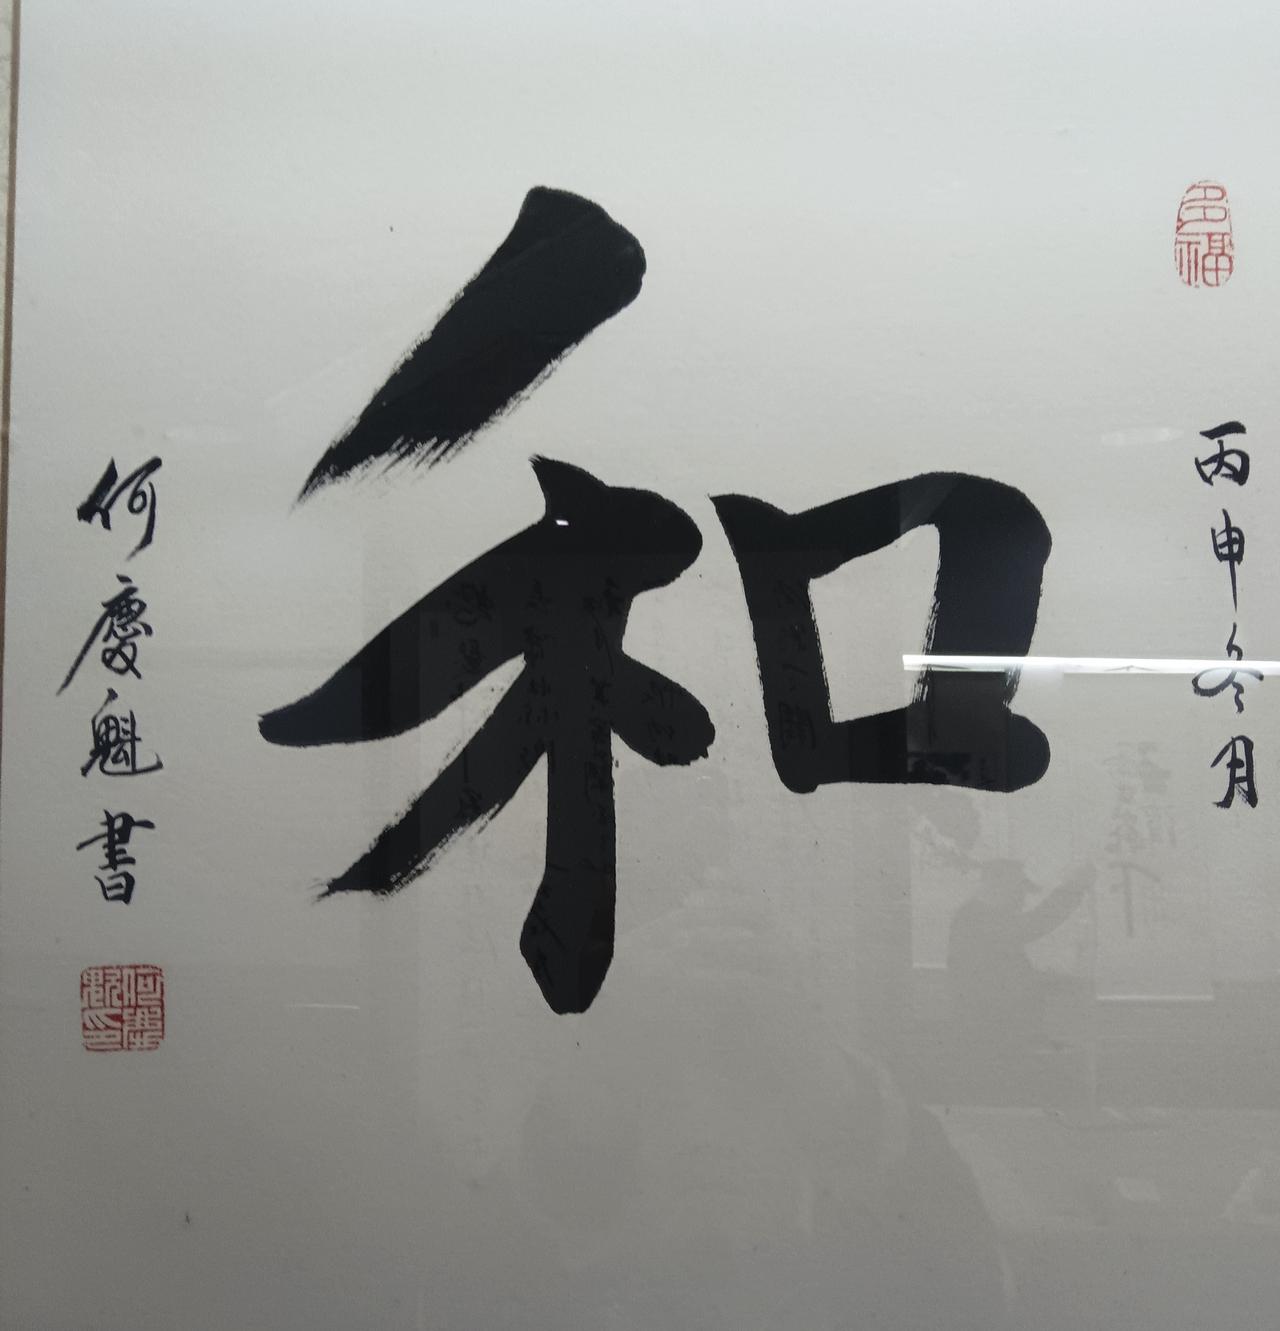 多福
丙申冬月
和
何慶魁書
何慶魁印